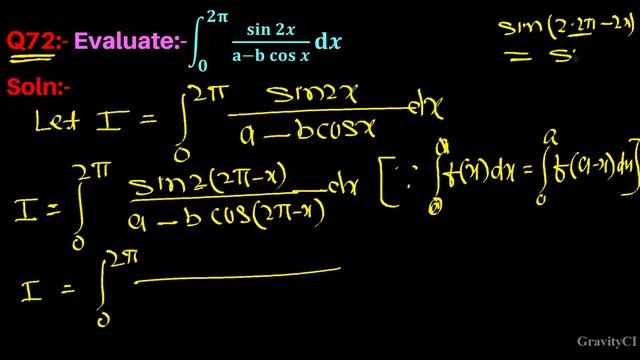 Q72:- Evaluate:- ∫₀^2π sin 2x / (a−b cos x) dx
sin(2·2π−2x)
= si
Soln:-
Let I = ∫₀^2π sin2x / (a − b cosx) dx
I = ∫₀^2π sin2(2π−x) / (a − b cos(2π−x)) dx [∵ ∫₀^a f(x)dx = ∫₀^a f(a−x)dx]
I = ∫₀^2π
GravityCI